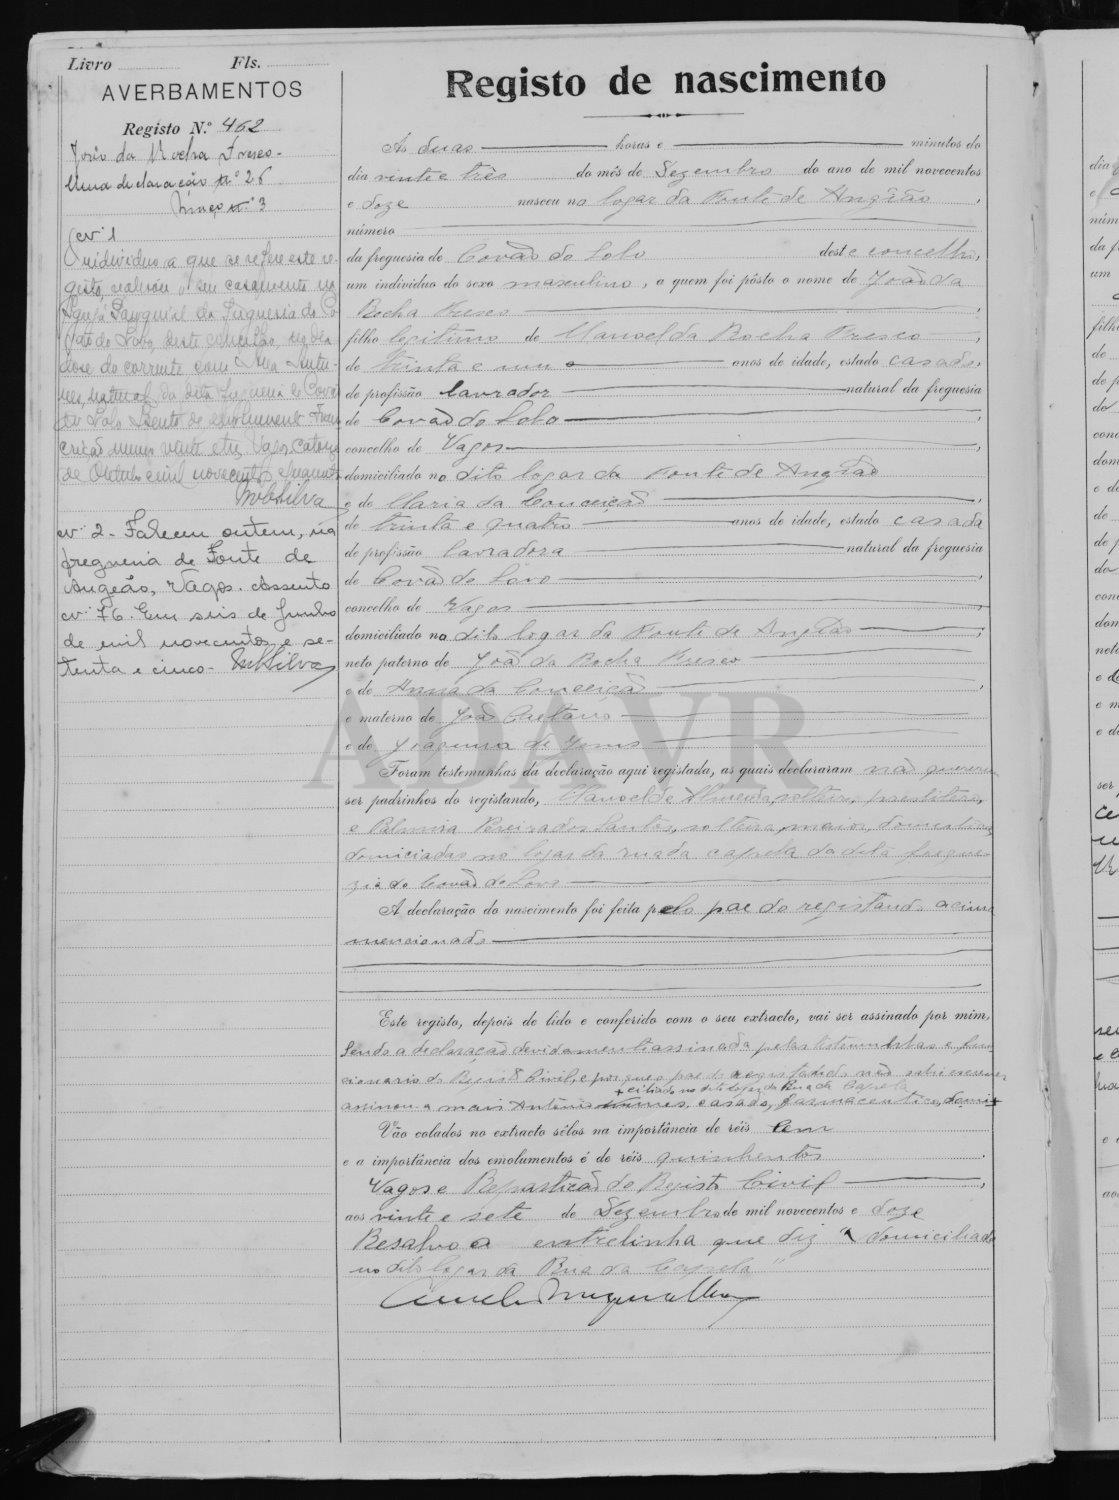 Livro Fls.
AVERBAMENTOS
Registo N.º 462
João da Rocha Fresco -
Uma declaração nº 26
Março nº 3
Nº 1
O individuo a que se refere este re-
gisto, realizou o seu casamento na
Igreja Paroquial da freguesia de Co-
vão do Lobo, deste concelho, no dia
doze do corrente com
natural da dita freguesia de Covão
do Lobo. Isento de emolumentos.
vinte e tres. Vagos, catorze
de Outubro mil novecentos e quarenta
MSilva
Nº 2 - Faleceu ontem, na
freguesia de Fonte de
Angeão, Vagos. Assento
nº 76. Em seis de Junho
de mil novecentos e se-
tenta e cinco - MSilva
Registo de nascimento
Ás duas horas e minutos do
dia vinte e três do mês de Dezembro do ano de mil novecentos
e doze nasceu no logar da Fonte de Angião,
número
da freguesia de Covão do Lobo deste concelho,
um indivíduo do sexo masculino, a quem foi pôsto o nome de João da
Rocha Fresco
filho legitimo de Manoel da Rocha Fresco,
de Trinta e um anos de idade, estado casado,
de profissão lavrador natural da freguesia
de Covão do Lobo,
concelho de Vagos,
domiciliado no dito logar da Fonte de Angião
e de Maria da Conceição,
de trinta e quatro anos de idade, estado casada
de profissão lavradora natural da freguesia
de Covão do Lovo,
concelho de Vagos,
domiciliado no dito logar da Fonte de Angião,
neto paterno de João da Rocha Fresco
e de Anna da Conceição,
e materno de João Caetano
e de Joaquina de Jesus
Foram testemunhas da declaração aqui registada, as quais declararam não querer
ser padrinhos do registando, Manoel de Almeida, solteiro, presbitero,
e Palmira Pereira dos Santos, solteira, maior, domestica,
domiciadas no logar da rua da capela da dita fregue-
zia do Covão do Lovo
A declaração do nascimento foi feita pelo pae do registando acima
mencionado
Este registo, depois de lido e conferido com o seu extracto, vai ser assinado por mim,
sendo a declaração devidamente assinada pelas testemunhas e fun-
cionario do Registo Civil, e porque o pae do registado não sabe escrever
+ ciliado no dito logar da Rua da Capela
assinou-a mais António Nunes, casado, farmaceutico, domi+
Vão colados no extracto sêlos na importância de réis cem
e a importância dos emolumentos é de réis quinhentos.
Vagos e Repartição do Registo Civil,
aos vinte e sete de Dezembro de mil novecentos e doze
Resalvo a entrelinha que diz "domiciliado
no dito logar da Rua da Capela"
ADAVR